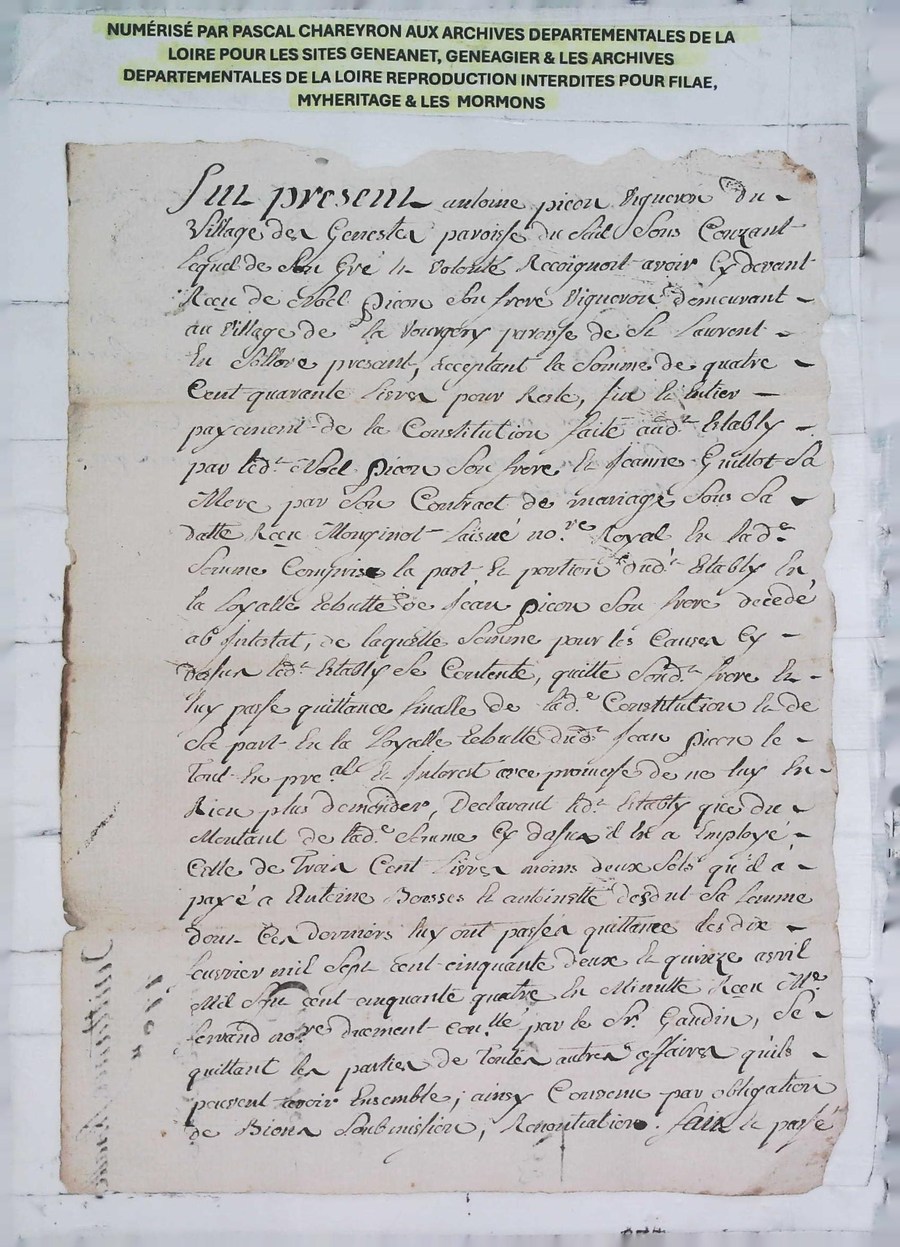 NUMÉRISÉ PAR PASCAL CHAREYRON AUX ARCHIVES DEPARTEMENTALES DE LA
LOIRE POUR LES SITES GENEANET, GENEAGIER & LES ARCHIVES
DEPARTEMENTALES DE LA LOIRE REPRODUCTION INTERDITES POUR FILAE,
MYHERITAGE & LES MORMONS
Fut present antoine picon Vigneron du
Village des Genestes paroisse du Sail Sous Couzant
Lequel de Son Gré et Volonté Recoignoit avoir Cy devant
Receu de Noël Picon Son frere Vigneron demeurant
au Village de la Vourgery paroisse de St Laurent
En Sollore presant, acceptant la Somme de quatre
Cent quarante Livres pour Reste, fin et Entier
payement de la Constitution faite aud.t Estably
par led.t Noël Picon Son frere et Jeanne Guillot Sa
Mere par Son Contract de mariage Sous Sa
datte Receu Monginot Laisné no.re Royal En lad.e
Somme Comprise la part et portion dud.t Estably En
la Loyalle Echutte de Jean Picon Son frere decedé
ab Intestat, de laquelle Somme pour les Causes Cy
desus led.t Estably Se Contente, quitte Sond.t frere En
luy passe quittance finalle de lad.e Constitution et de
Sa part En la Loyalle Echutte dud.t Jean Picon le
Tout En pre.al et Interest avec promesse de ne luy En
Rien plus demander, Declarant led.t Estably que du
Montant de lad.e Somme Cy desus il En a Employé
Celle de Trois Cent Livres moins deux Sols qu'il a
payé a Antoine Bosses et antoinette Sa femme
dont Ces derniers luy ont passés quittance les dix
fevrier mil Sept cent cinquante deux et quinze avril
Mil Sept cent cinquante quatre En Minutte Receu Me
no.re duement con.llé par le Sr. Gaudin, Se
quittant les parties de Toutes autres affaires qu'ils
peuvent avoir Ensemble; ainsy Convenu par obligation
de Biens Soubmission, Renontiation. fait et passé